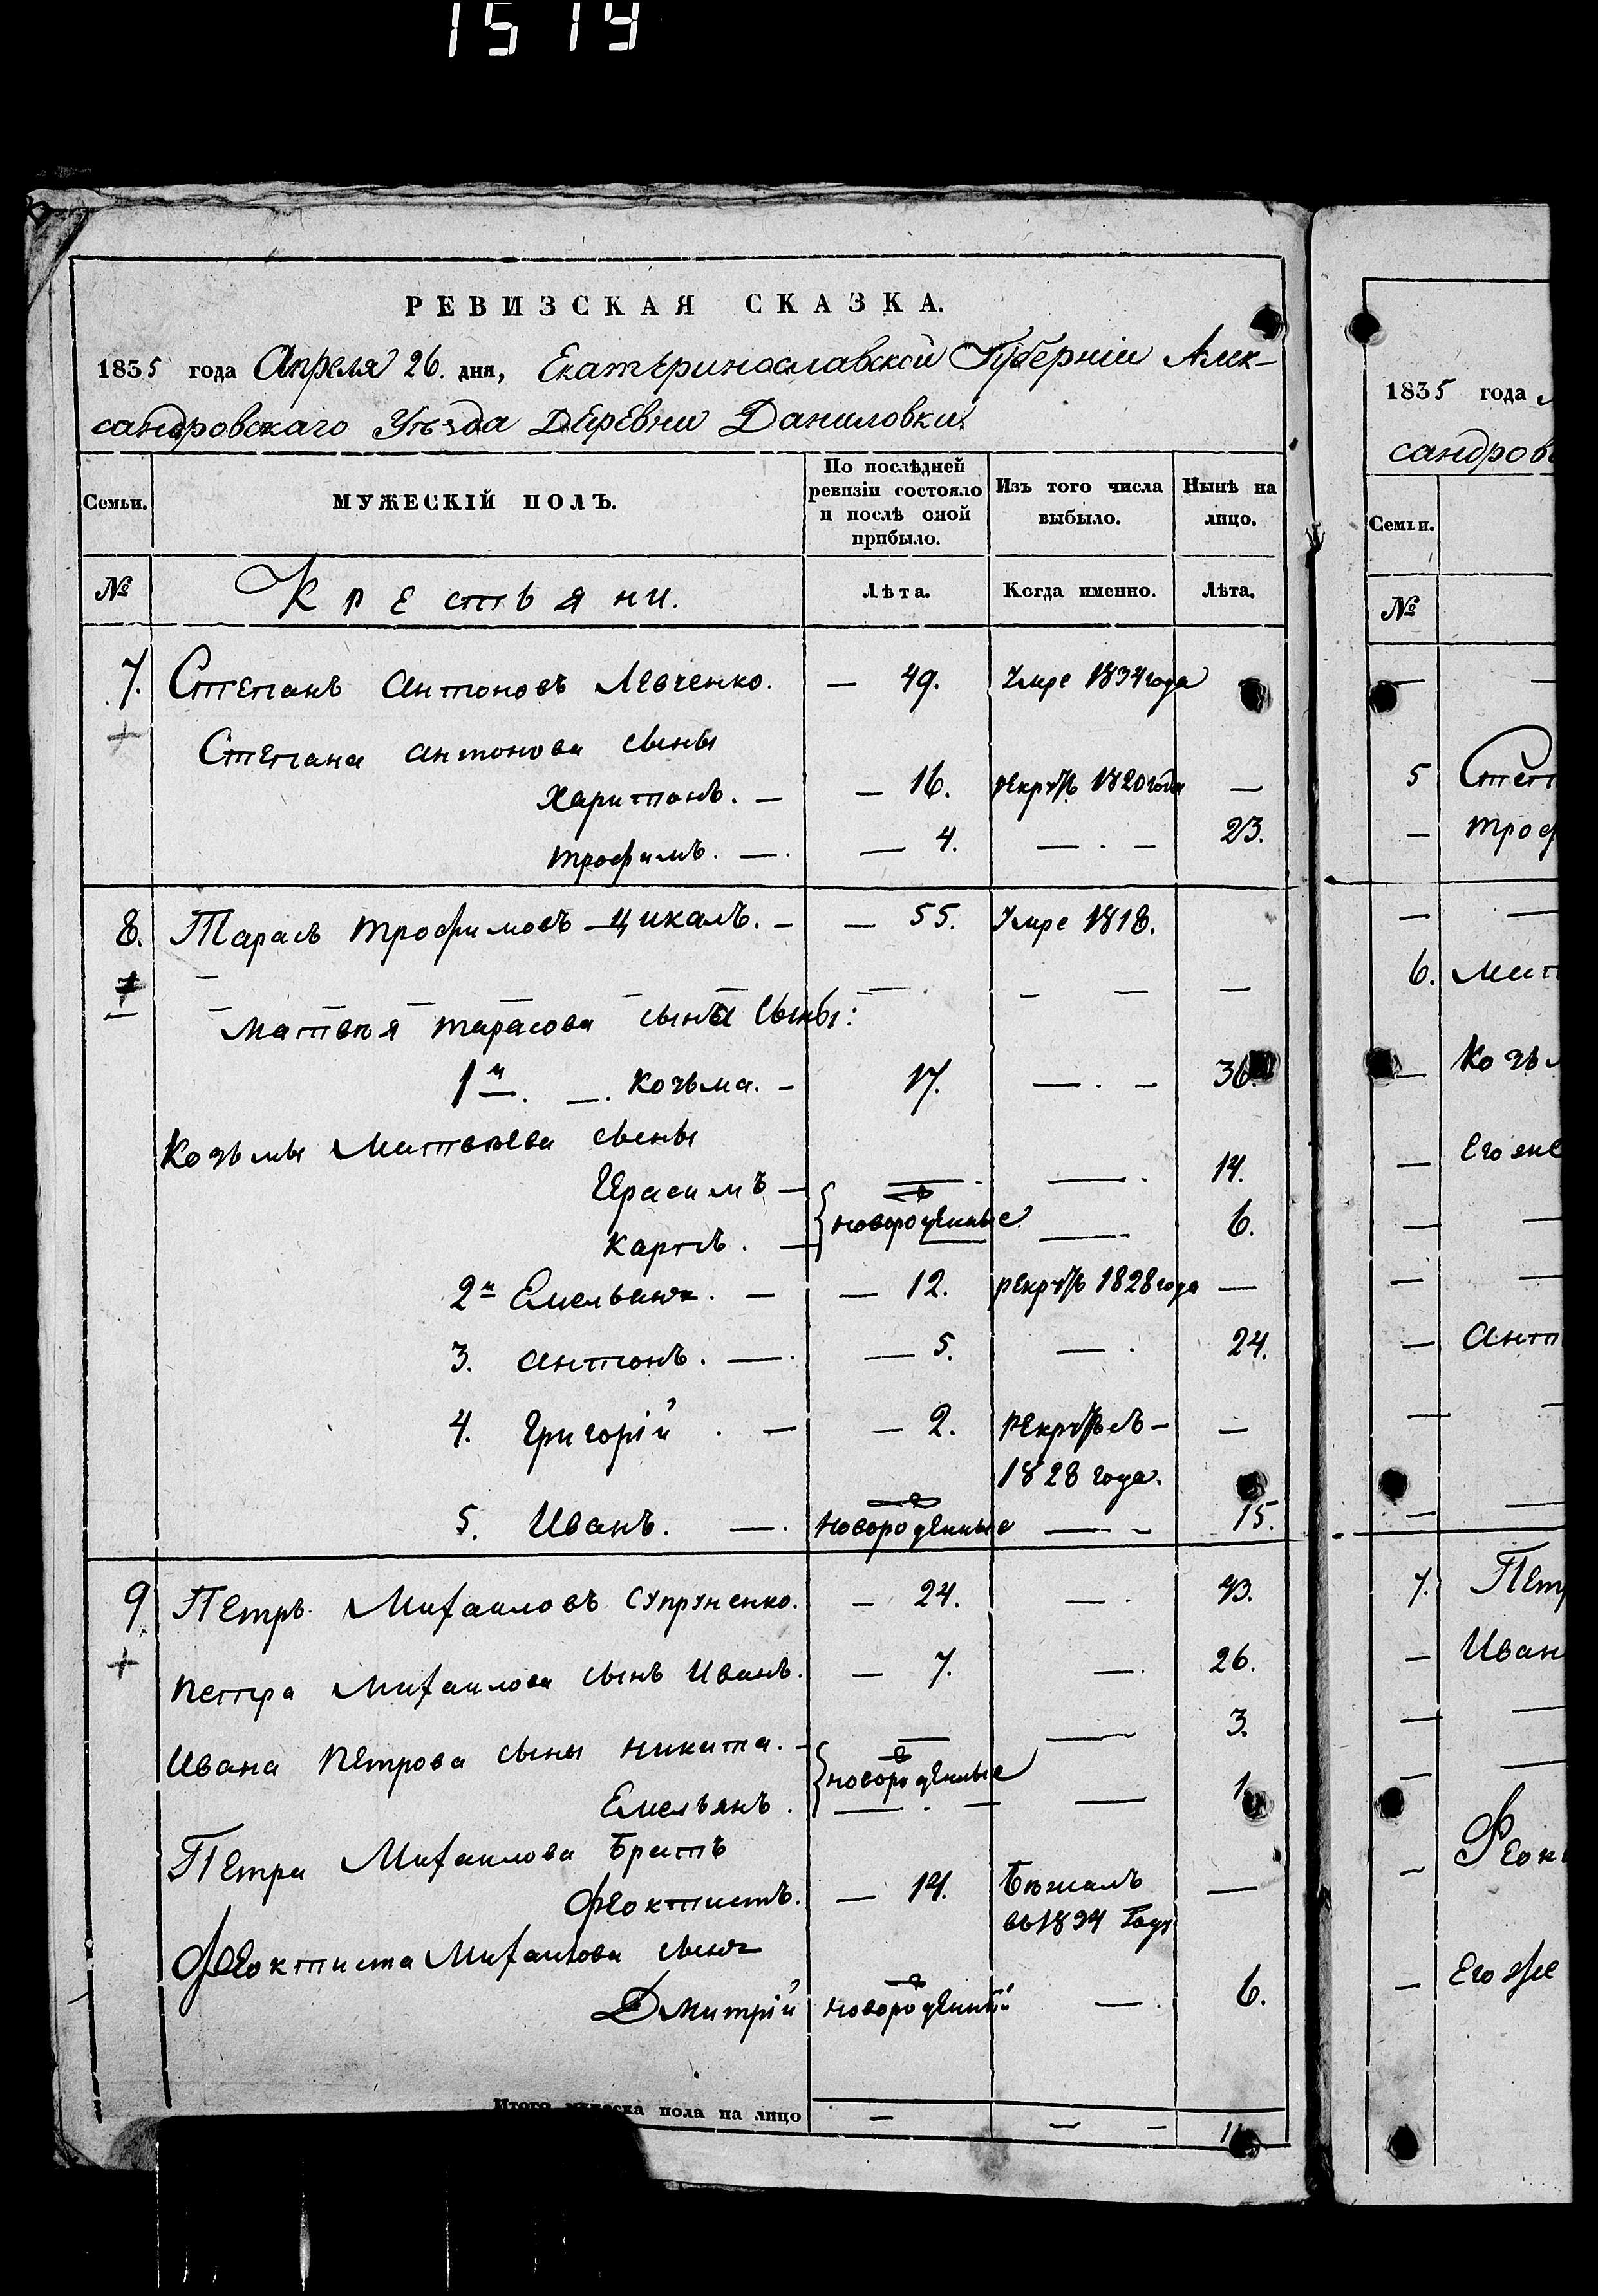 1519
РЕВИЗСКАЯ СКАЗКА.
1835 года Апреля 26. дня, Екатеринославской Губерніи Алек-
сандровскаго Уѣзда Деревни Даниловки.
Семьи.
МУЖЕСКІЙ ПОЛЪ.
По послѣдней
ревизіи состояло
и послѣ оной
прибыло.
Изъ того числа
выбыло.
Нынѣ на
лицо.
№ Крестьяни. Лѣта. Когда именно. Лѣта.
7. Степанъ Антоновъ Левченко. — 49. Умре 1834 года
+ Степана Антонова сыны
Харитонъ. — — 16. рекрутъ 1820 года —
Трофимъ. — — 4. — . — 23.
8. Тарасъ Трофимовъ Цикалъ. — — 55. Умре 1818.
7
Матвѣя Тарасова сына Сыны:
1й Козьма. — 17. — . — 36.
Козьмы Матвѣева сыны
Герасимъ — — — 14.
Карпъ. — новорожденные — 6.
2й Емельянъ. — — 12. рекрутъ 1828 года —
3. Антонъ. — — 5. — 24.
4. Григорій . — — 2. рекрутъ съ — —
1828 года.
5. Иванъ. — новорожденные — 15.
9 Петръ Михаиловъ Супруненко. — 24. — 43.
+ Петра Михаилова сынъ Иванъ. — 7. — 26.
Ивана Петрова сыны Никита. — — — 3.
новорожденные
Емельянъ. — — 1.
Петра Михаилова братъ
Феоктистъ. — 14. Бѣжалъ —
въ 1834 году
Феоктиста Михаилова сынъ
Дмитрій новорожденный — 6.
Итого мужеска пола на лицо — —
1835 года
сандров
Семьи.
№
5 Степ
— Троф
6. Мат
Козьм
— Его же
— Ант
7. Пет
— Иван
— Феок
— Его же